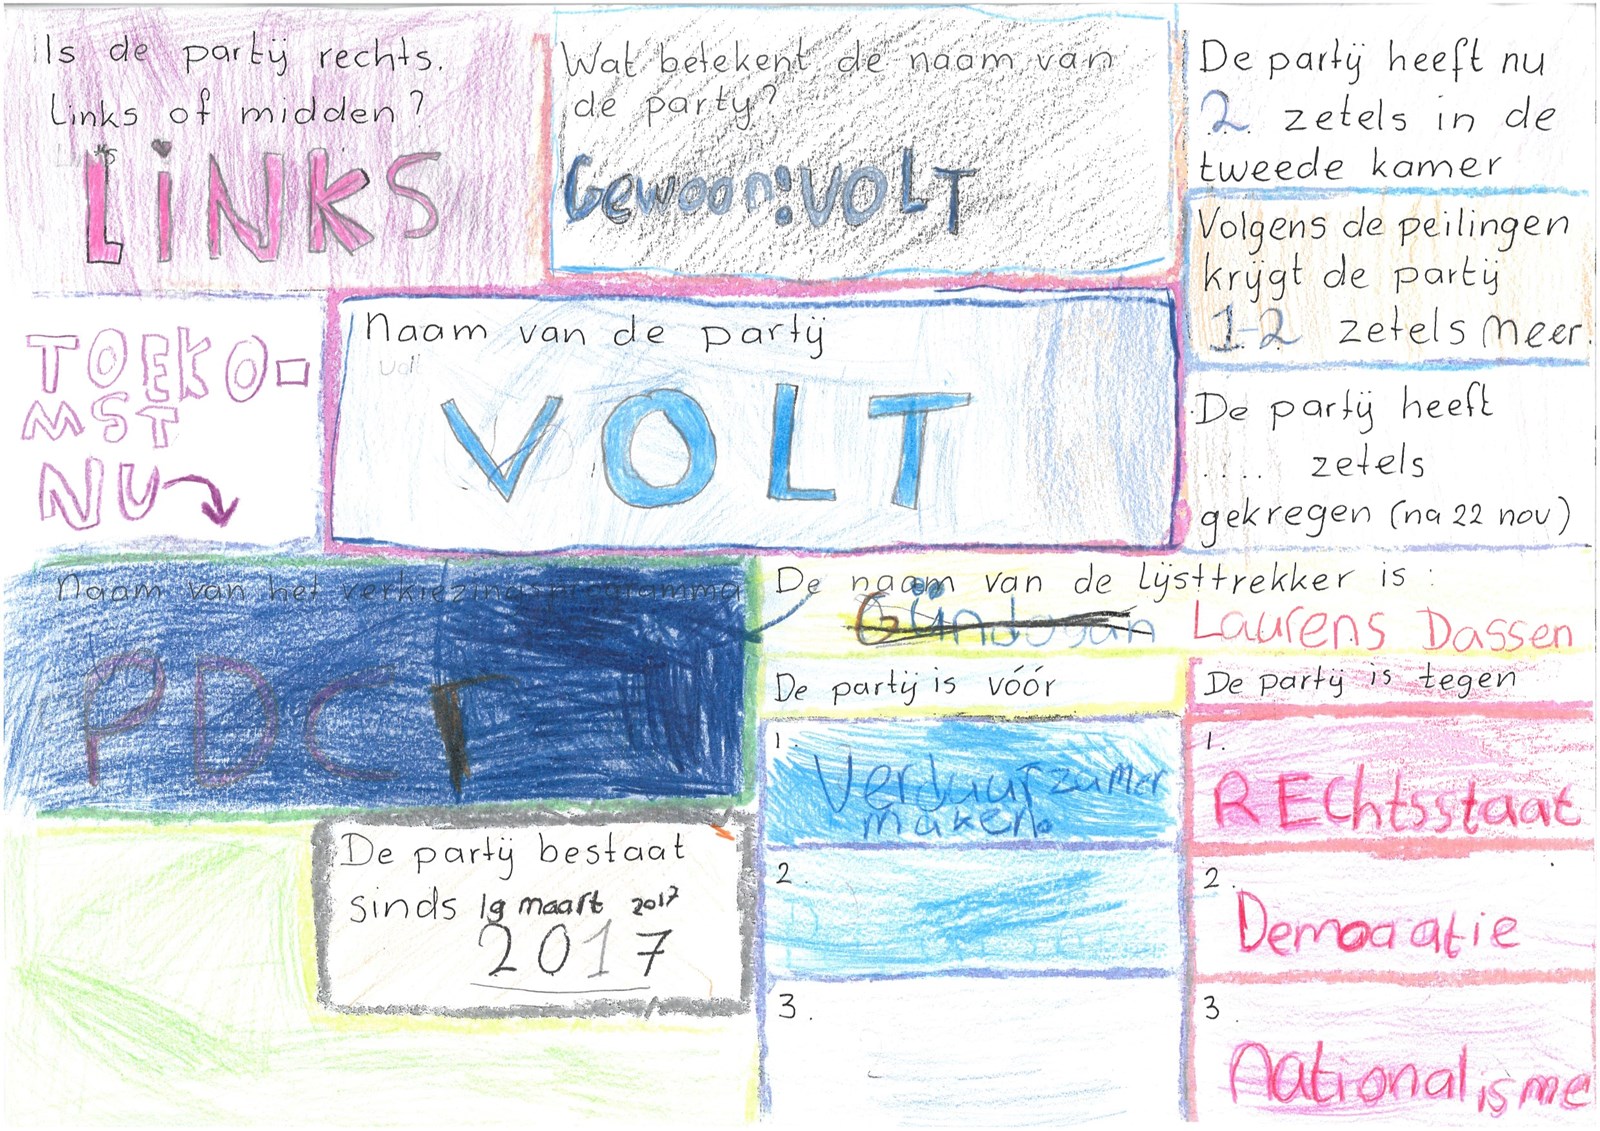 Is de partij rechts.
Links of midden?
Links
LiNKS
Wat betekent de naam van
de party?
Gewoon:VOLT
De partij heeft nu
2 zetels in de
tweede kamer
Volgens de peilingen
krijgt de partij
1-2 zetels meer.
TOEKO-
MST
NU
Naam van de partij
Volt
VOLT
De partij heeft
.... zetels
gekregen (na 22 nov)
Naam van het verkiezingsprogramma
PDC
De naam van de lijsttrekker is:
Gündogan Laurens Dassen
De partij is vóór
1.
Verduurzamer
maken.
2.
3.
De partij is tegen
1.
REchtsstaat
2.
Democratie
3.
Nationalisme
De partij bestaat
sinds 19 maart 2017
2017